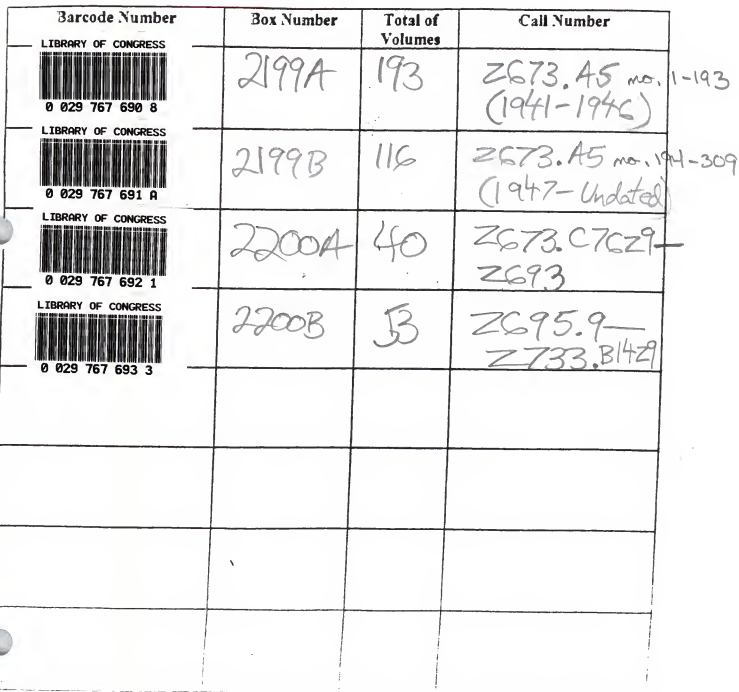 Barcode Number Box Number Total of Volumes Call Number
LIBRARY OF CONGRESS
0 029 767 690 8
2199A 193 Z673.A5 no. 1-193
(1941-1946)
LIBRARY OF CONGRESS
0 029 767 691 A
2199B 116 Z673.A5 no. 194-309
(1947-Undated)
LIBRARY OF CONGRESS
0 029 767 692 1
2200A 40 Z673.C76Z9-
Z693
LIBRARY OF CONGRESS
0 029 767 693 3
2200B 53 Z695.9-
Z733.B14Z9